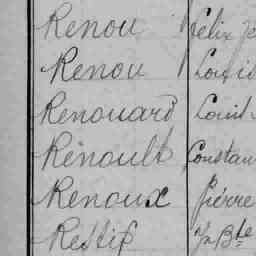 Renou Félix
Renou Louis
Renouard Louis
Rénoult Constan
Renoux Pierre
Restif Jn Bte